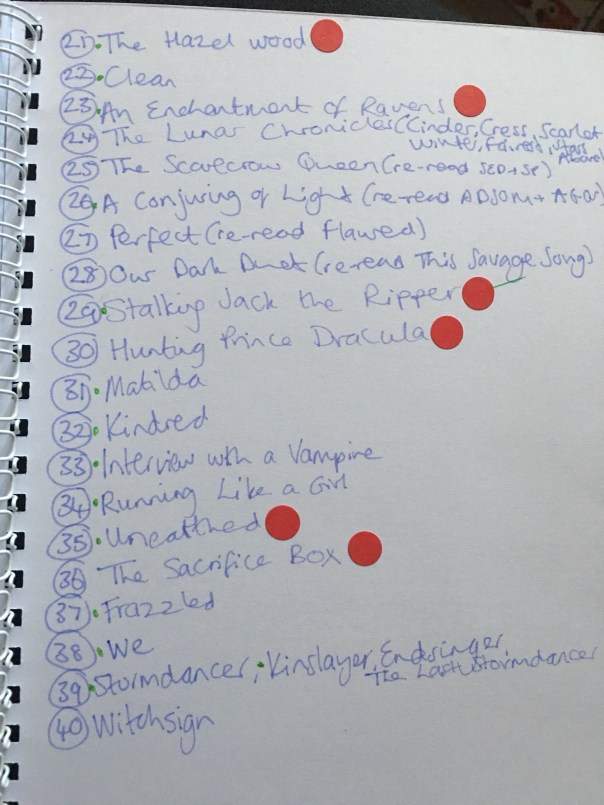 21 The Hazel wood
22 Clean
23 An Enchantment of Ravens
24 The Lunar Chronicles (Cinder, Cress, Scarlet
Winter, Fairest, Stars Above)
25 The Scarecrow Queen (re-read SED + SP)
26 A Conjuring of Light (re-read ADSOM + AGOS)
27 Perfect (re-read Flawed)
28 Our Dark Duet (re-read This Savage Song)
29 Stalking Jack the Ripper
30 Hunting Prince Dracula
31 Matilda
32 Kindred
33 Interview with a Vampire
34 Running Like a Girl
35 Unearthed
36 The Sacrifice Box
37 Frazzled
38 We
39 Stormdancer, Kinslayer, Endsinger,
The Last Stormdancer
40 Witchsign